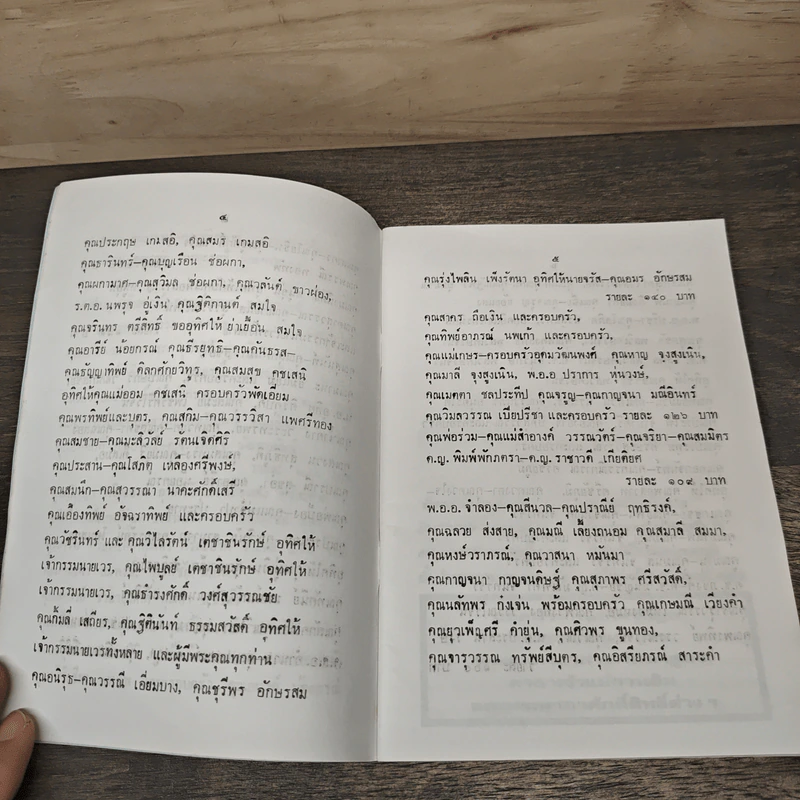 ๔
คุณประกฤษ เกมสอิ, คุณสมร เกมสอิ
คุณธารินทร์-คุณบุญเรือน ช่อผกา,
คุณผกามาศ-คุณสุวิมล ช่อผกา, คุณวสันต์ ขาวผ่อง,
ร.ต.อ. นพรุจ อู่เงิน คุณฐิติกานต์ สมใจ
คุณจรินทร ศรีสิทธิ์ ขออุทิศให้ ย่าเยื้อน สมใจ
คุณอารีย์ น้อยกรณ์ คุณธีรยุทธิ-คุณคันธรส-
คุณธัญญาทิพย์ ดิลกศักยวิทูร, คุณสมสุข คชเสนิ
อุทิศให้คุณแม่ออม คชเสนิ ครอบครัวพัดเอี่ยม
คุณพรทิพย์และบุตร, คุณสกิม-คุณวรรวิสา แพศรีทอง
คุณสมชาย-คุณมะลิวัลย์ รัตนเจิดศิริ
คุณประสาน-คุณโสภตุ เหลืองศรีพงษ์,
คุณสมนึก-คุณสุวรรณา นาคะศักดิ์เสรี
คุณเอื้องทิพย์ อัจฉราทิพย์ และครอบครัว
คุณวัชรินทร์ และ คุณวิไลรัตน์ เตชาชินรักษ์ อุทิศให้
เจ้ากรรมนายเวร, คุณไพบูลย์ เตชาชินรักษ์ อุทิศให้
เจ้ากรรมนายเวร, คุณธำรงศักดิ์ วงศ์สุวรรณชัย
คุณกิ้มลี่ เสถียร, คุณฐิตินันท์ ธรรมสวัสดิ์ อุทิศให้
เจ้ากรรมนายเวรทั้งหลาย และผู้มีพระคุณทุกท่าน
คุณอนิรุธ-คุณวรรณี เอี่ยมบาง, คุณชุรีพร อักษรสม
๕
คุณรุ่งไพลิน เพ็งรัตนา อุทิศให้นายจรัส-คุณอมร อักษรสม
รายละ ๑๔๐ บาท
คุณสาคร ถือเงิน และครอบครัว,
คุณทิพย์อาภรณ์ นพเก้า และครอบครัว,
คุณแม่เกษร-ครอบครัวอุดมวัฒนพงศ์ คุณหาญ จุงสูงเนิน,
คุณมาลี จุงสูงเนิน, พ.อ.อ ปราการ หุ่นวงษ์,
คุณเมตตา ชลประทีป คุณจรูญ-คุณกาญจนา มณีอินทร์
คุณวิมลวรรณ เปี่ยปรีชา และครอบครัว รายละ ๑๒๖ บาท
คุณพ่อร่วม-คุณแม่สำอางค์ วรรณวัตร์-คุณจริยา-คุณสมมิตร
ด.ญ. พิมพ์พักภตรา-ด.ญ. ราชาวดี เกียติยศ
รายละ ๑๐๙ บาท
พ.อ.อ. จำลอง-คุณสีนวล-คุณปราณีย์ ฤทธิรงค์,
คุณฉลวย ส่งสาย, คุณมณี เลี้ยงถนอม คุณสุมาลี สมมา,
คุณหงษ์วราภรณ์, คุณวาสนา หมั่นมา
คุณกาญจนา กาญจนดิษฐ์ คุณสุภาพร ศรีสวัสดิ์,
คุณนลัทพร ก๋งเจ่น พร้อมครอบครัว คุณเกษมณี เวียงคำ
คุณยุวเพ็ญศรี คำยุ่น, คุณศิวพร ขุนทอง,
คุณจารุวรรณ ทรัพย์สืบุตร, คุณอิสรีย์ภรณ์ สาระคำ